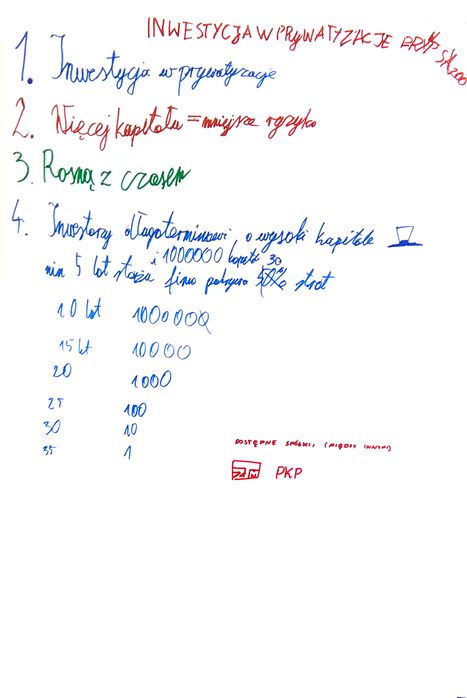 INWESTYCJA W PRYWATYZACJE
1. Inwestycja w prywatyzacje
2. Więcej kapitału = mniejsze ryzyko
3. Rosną z czasem
4. Inwestorzy długoterminowi o wysoki kapitale
i 1000000 30
min 5 lat staża firma pokrywa strat
10 lat 1000000
15 lt 10000
20 1000
25 100
30 10
35 1
DOSTĘPNE SPÓŁKI (MIĘDZY INNYMI)
PKP